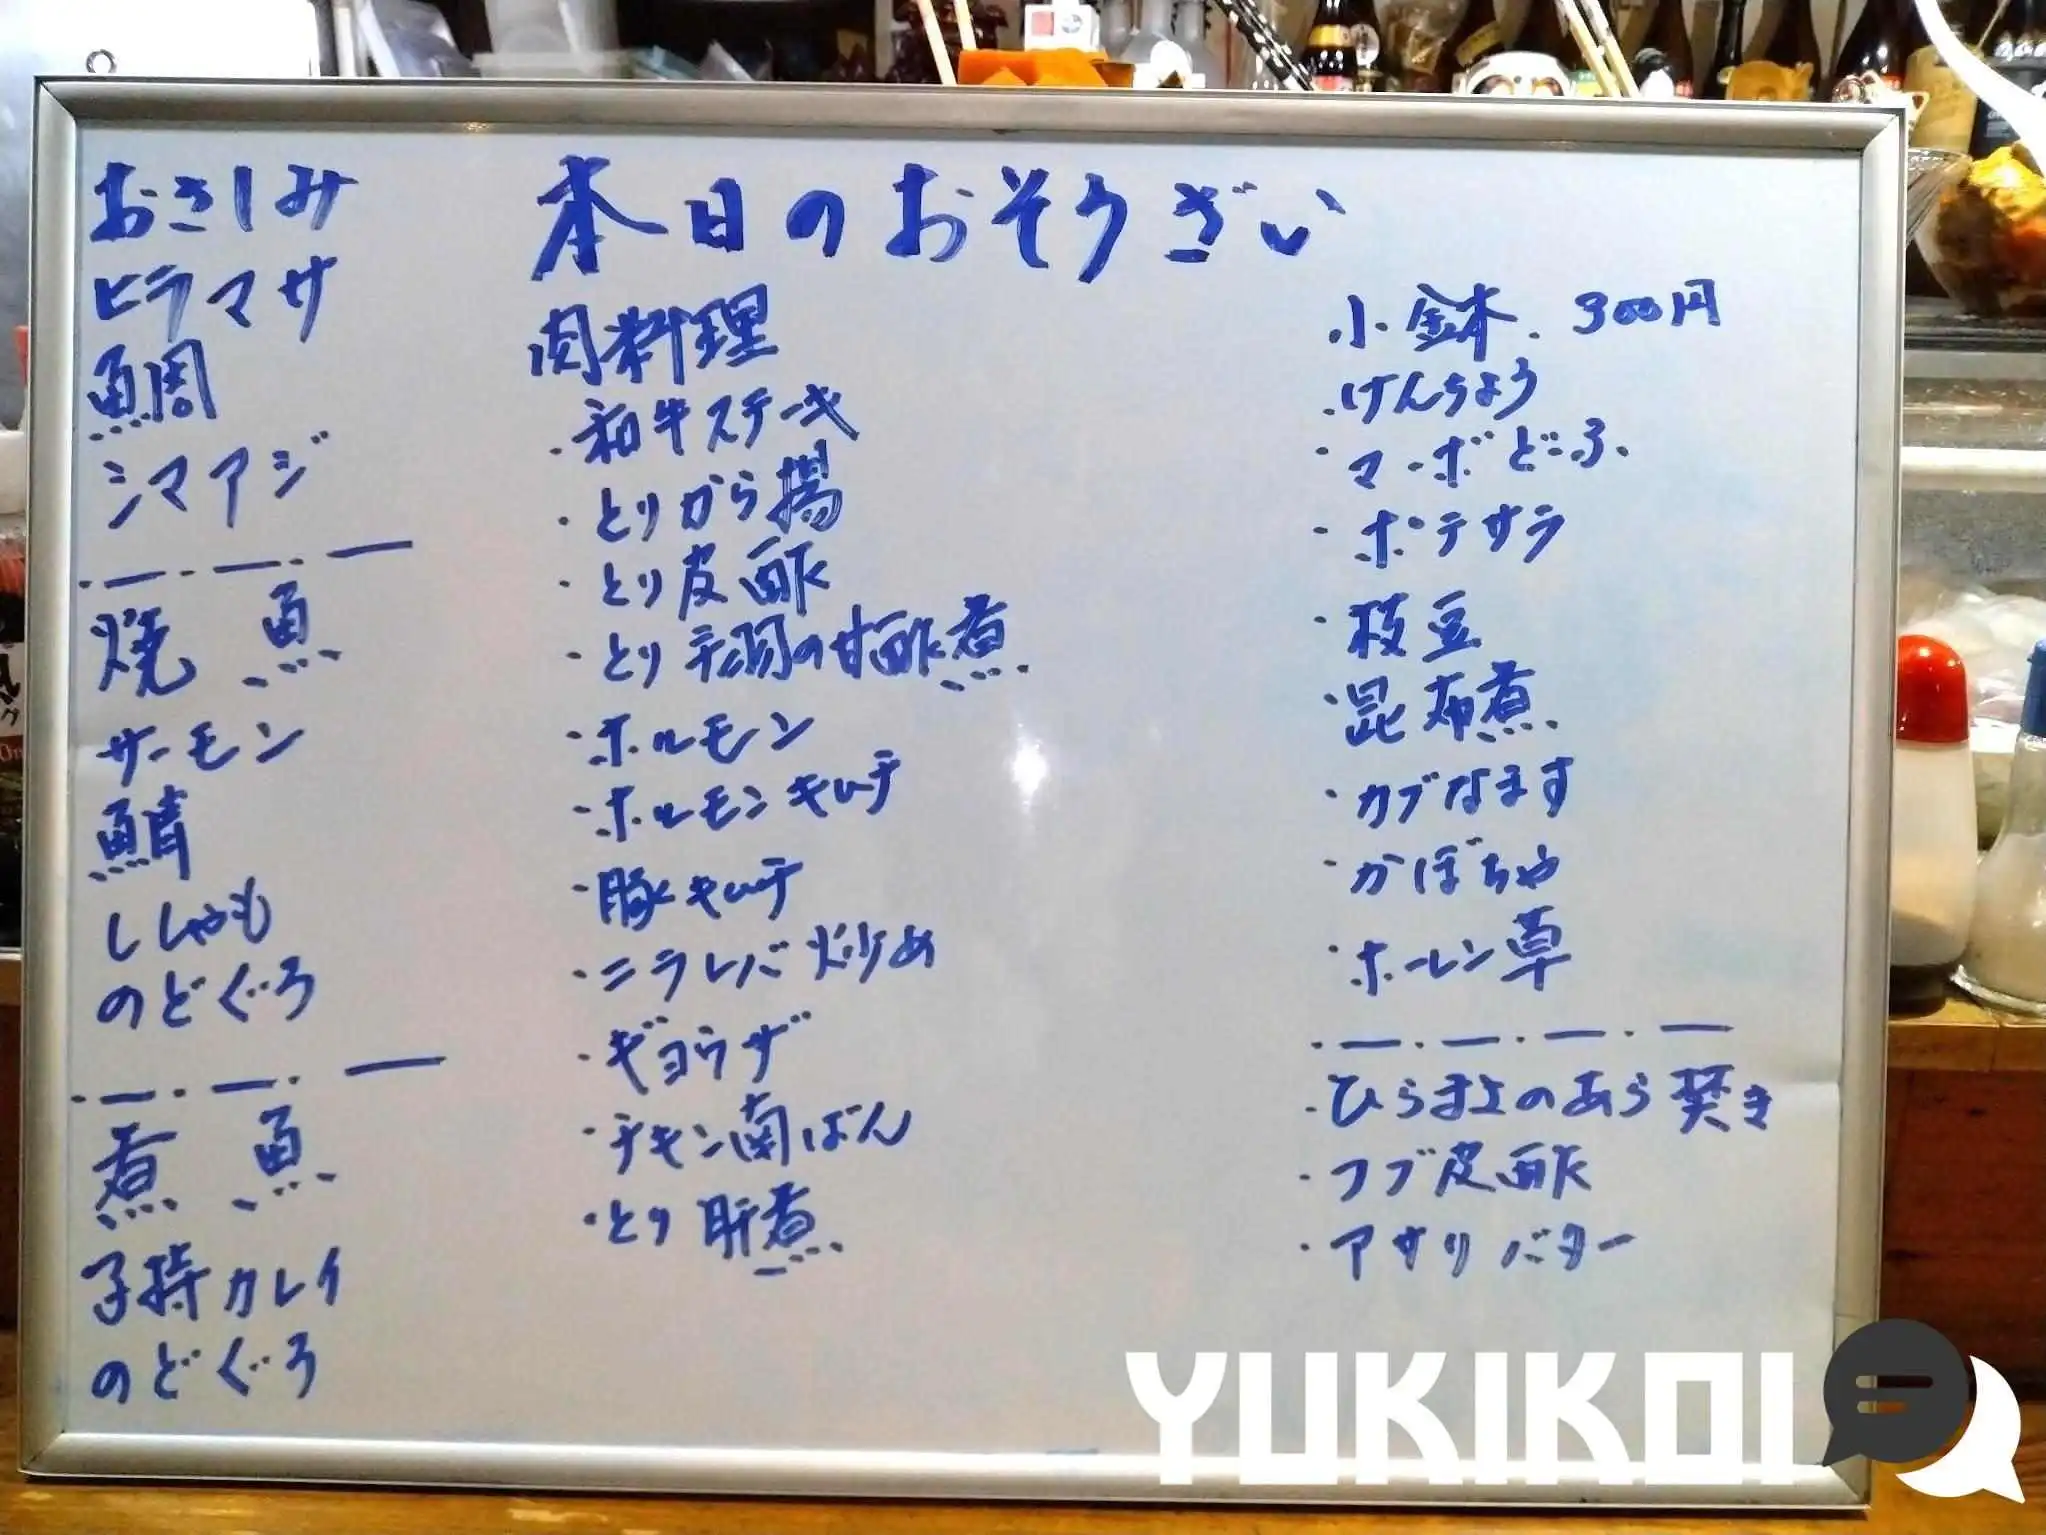 本日のおそうざい
おさしみ
ヒラマサ
鯛
シマアジ
焼魚
サーモン
鯖
ししゃも
のどぐろ
煮魚
子持カレイ
のどぐろ
肉料理
・和牛ステーキ
・とりから揚
・とり皮酢
・とり手羽の甘酢煮
・ホルモン
・ホルモンキムチ
・豚キムチ
・ニラレバ炒め
・ギョウザ
・チキン南ばん
・とり肝煮
小鉢 300円
・けんちょう
・マーボどーふ
・ポテサラ
・枝豆
・昆布煮
・カブなます
・かぼちゃ
・ホーレン草
・ひらまさのあら焚き
・フグ皮酢
・アサリバター
YUKIKOI